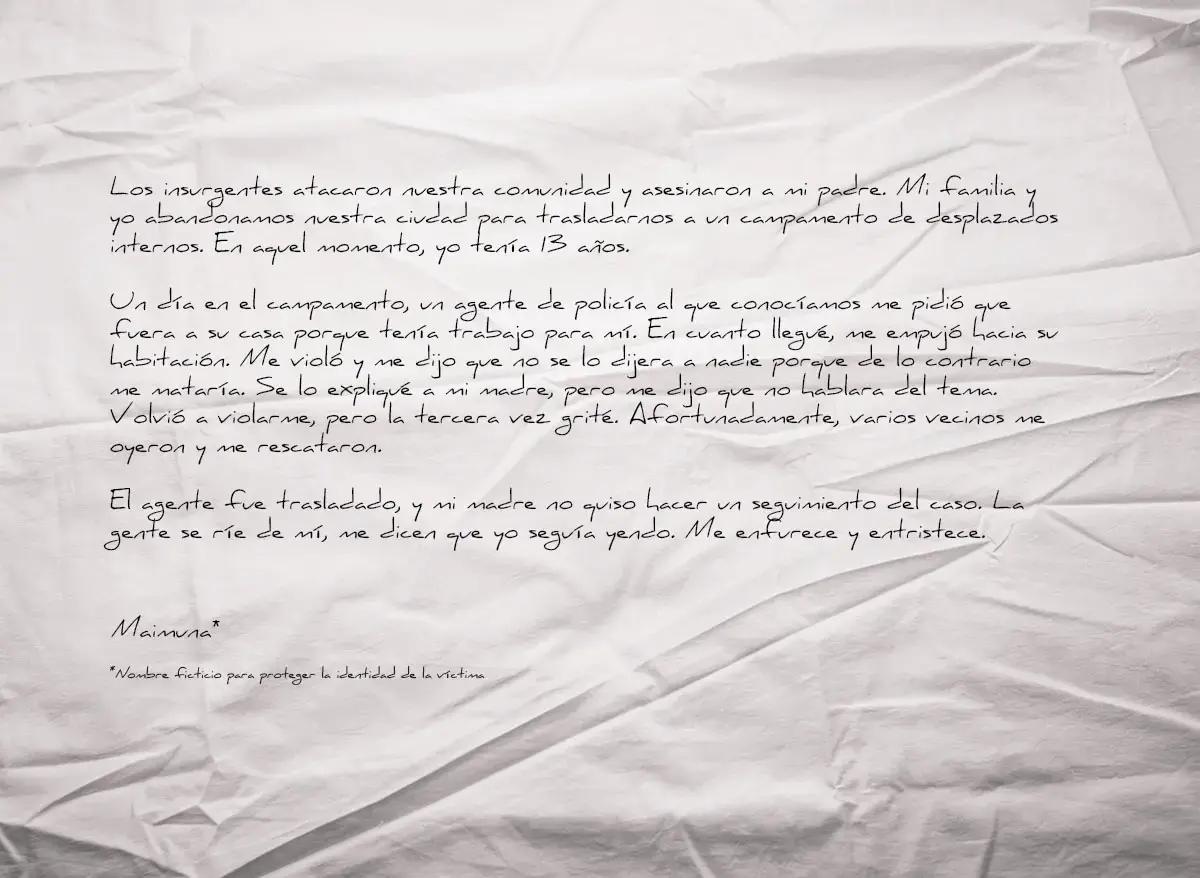 Los insurgentes atacaron nuestra comunidad y asesinaron a mi padre. Mi familia y
yo abandonamos nuestra ciudad para trasladarnos a un campamento de desplazados
internos. En aquel momento, yo tenía 13 años.
Un día en el campamento, un agente de policía al que conocíamos me pidió que
fuera a su casa porque tenía trabajo para mí. En cuanto llegué, me empujó hacia su
habitación. Me violó y me dijo que no se lo dijera a nadie porque de lo contrario
me mataría. Se lo expliqué a mi madre, pero me dijo que no hablara del tema.
Volvió a violarme, pero la tercera vez grité. Afortunadamente, varios vecinos me
oyeron y me rescataron.
El agente fue trasladado, y mi madre no quiso hacer un seguimiento del caso. La
gente se ríe de mí, me dicen que yo seguía yendo. Me enfurece y entristece.
Maimuna*
*Nombre ficticio para proteger la identidad de la víctima